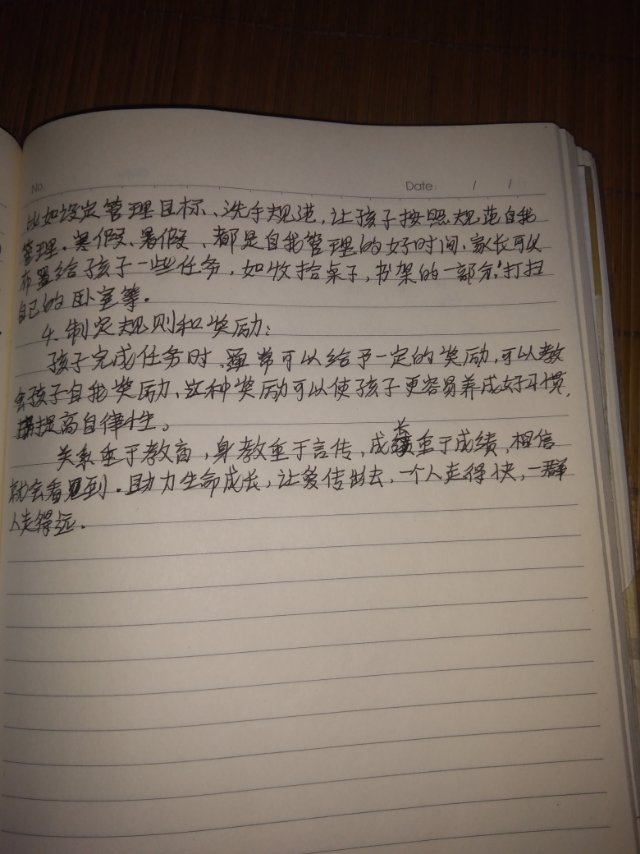 No.
Date: / /
比如设定管理目标、洗手规范,让孩子按照规范自我
管理。寒假、暑假、都是自我管理的好时间,家长可以
布置给孩子一些任务,如收拾桌子,书架的一部分,打扫
自己的卧室等。
4. 制定规则和奖励:
孩子完成任务时、通常可以给予一定的奖励,可以教
会孩子自我奖励、这种奖励可以使孩子更容易养成好习惯,
提高自律性。
关系重于教育,身教重于言传,成长重于成绩,相信
就会看见到。助力生命成长,让爱传出去,一个人走得快,一群
人走得远。